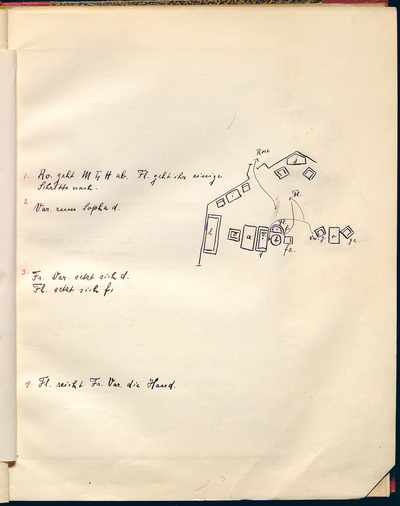 1. Ro. geht M T H ab. Fl. geht ihr einige
Schritte nach.
2. Var. zum Sopha d.
3. Fr. Var. setzt sich d.
Fl. setzt sich f1
4. Fl. reicht Fr. Var. die Hand.
Rose
d
Fl.
l
a
d
b
fl.
Var.